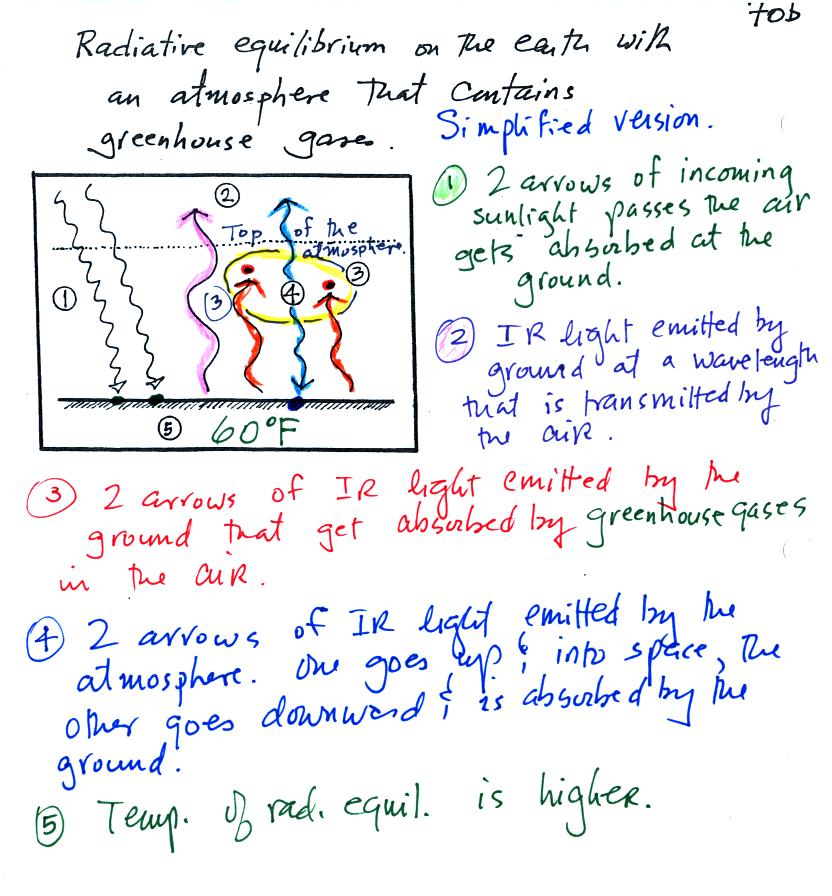 top
Radiative equilibrium on the earth with
an atmosphere that contains
greenhouse gases.
Simplified version.
1 2 arrows of incoming
sunlight passes the air
gets absorbed at the
ground.
2 IR light emitted by
ground at a wavelength
that is transmitted by
the air.
2
Top of the
atmosphere.
1
3
4
3
5 60°F
3 2 arrows of IR light emitted by the
ground that get absorbed by greenhouse gases
in the air.
4 2 arrows of IR light emitted by the
atmosphere. One goes up & into space, the
other goes downward & is absorbed by the
ground.
5 Temp. of rad. equil. is higher.